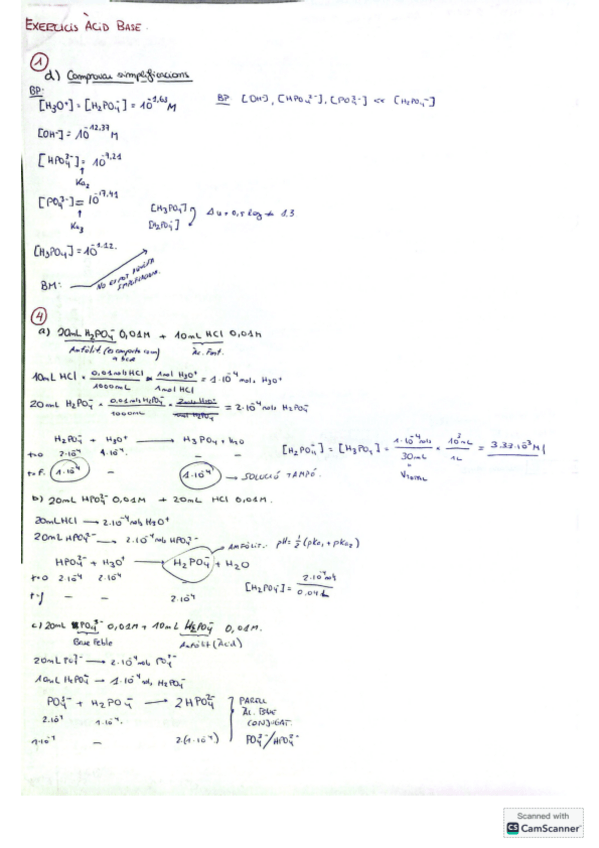 EXERCICIS ÀCID BASE.
1
d) Comprovar simplificacions
BP:
[H₃O⁺] = [H₂PO₄⁻] = 10⁻¹,⁶³ M
BP [OH⁻], [HPO₄²⁻], [PO₄³⁻] << [H₂PO₄⁻]
[OH⁻] = 10⁻¹²,³⁷ M
[HPO₄²⁻] = 10⁻⁷,²¹
Ka₂
[PO₄³⁻] =
Ka₃
[H₃PO₄]
[H₂PO₄⁻]
[H₃PO₄] = 10⁻¹·¹².
BM:
NO ES POT
4
a) 20mL H₂PO₄⁻ 0,01M + 10mL HCl 0,01M
Amfòlit. (es comporta com) a base
Àc. Fort.
10mL HCl · 0,01 mols HCl / 1000mL · 1mol H₃O⁺ / 1mol HCl = 1·10⁻⁴ mols H₃O⁺
20mL H₂PO₄⁻ · 0,01 mols H₂PO₄⁻ / 1000mL = 2·10⁻⁴ mols H₂PO₄⁻
H₂PO₄⁻ + H₃O⁺ → H₃PO₄ + H₂O
t=0 2·10⁻⁴ 1·10⁻⁴ – –
[H₂PO₄⁻] = [H₃PO₄] = 1·10⁻⁴ mols / 30mL × 10³mL / 1L = 3.33·10⁻³ M
t=F. 1·10⁻⁴ – 1·10⁻⁴ → SOLUCIÓ TAMPÓ.
b) 20mL HPO₄²⁻ 0,01M + 20mL HCl 0,01M.
20mL HCl → 2·10⁻⁴ mols H₃O⁺
20mL HPO₄²⁻ → 2·10⁻⁴ mols HPO₄²⁻
AMFÒLIT. pH = ½ (pKa₁ + pKa₂)
HPO₄²⁻ + H₃O⁺ → H₂PO₄⁻ + H₂O
t=0 2·10⁻⁴ 2·10⁻⁴ –
[H₂PO₄⁻] = 2·10⁻⁴ mols / 0,04L
t=f – – 2·10⁻⁴
c) 20mL PO₄³⁻ 0,01M + 10mL H₂PO₄⁻ 0,01M.
Base Feble Amfòlit (Àcid)
20mL PO₄³⁻ → 2·10⁻⁴ mols PO₄³⁻
10mL H₂PO₄⁻ → 1·10⁻⁴ mols H₂PO₄⁻
PO₄³⁻ + H₂PO₄⁻ → 2HPO₄²⁻
2·10⁻⁴ 1·10⁻⁴.
1·10⁻⁴ – 2·(1·10⁻⁴)
PARELL
Àc. Base
CONJUGAT.
PO₄³⁻/HPO₄²⁻
Scanned with
CS CamScanner